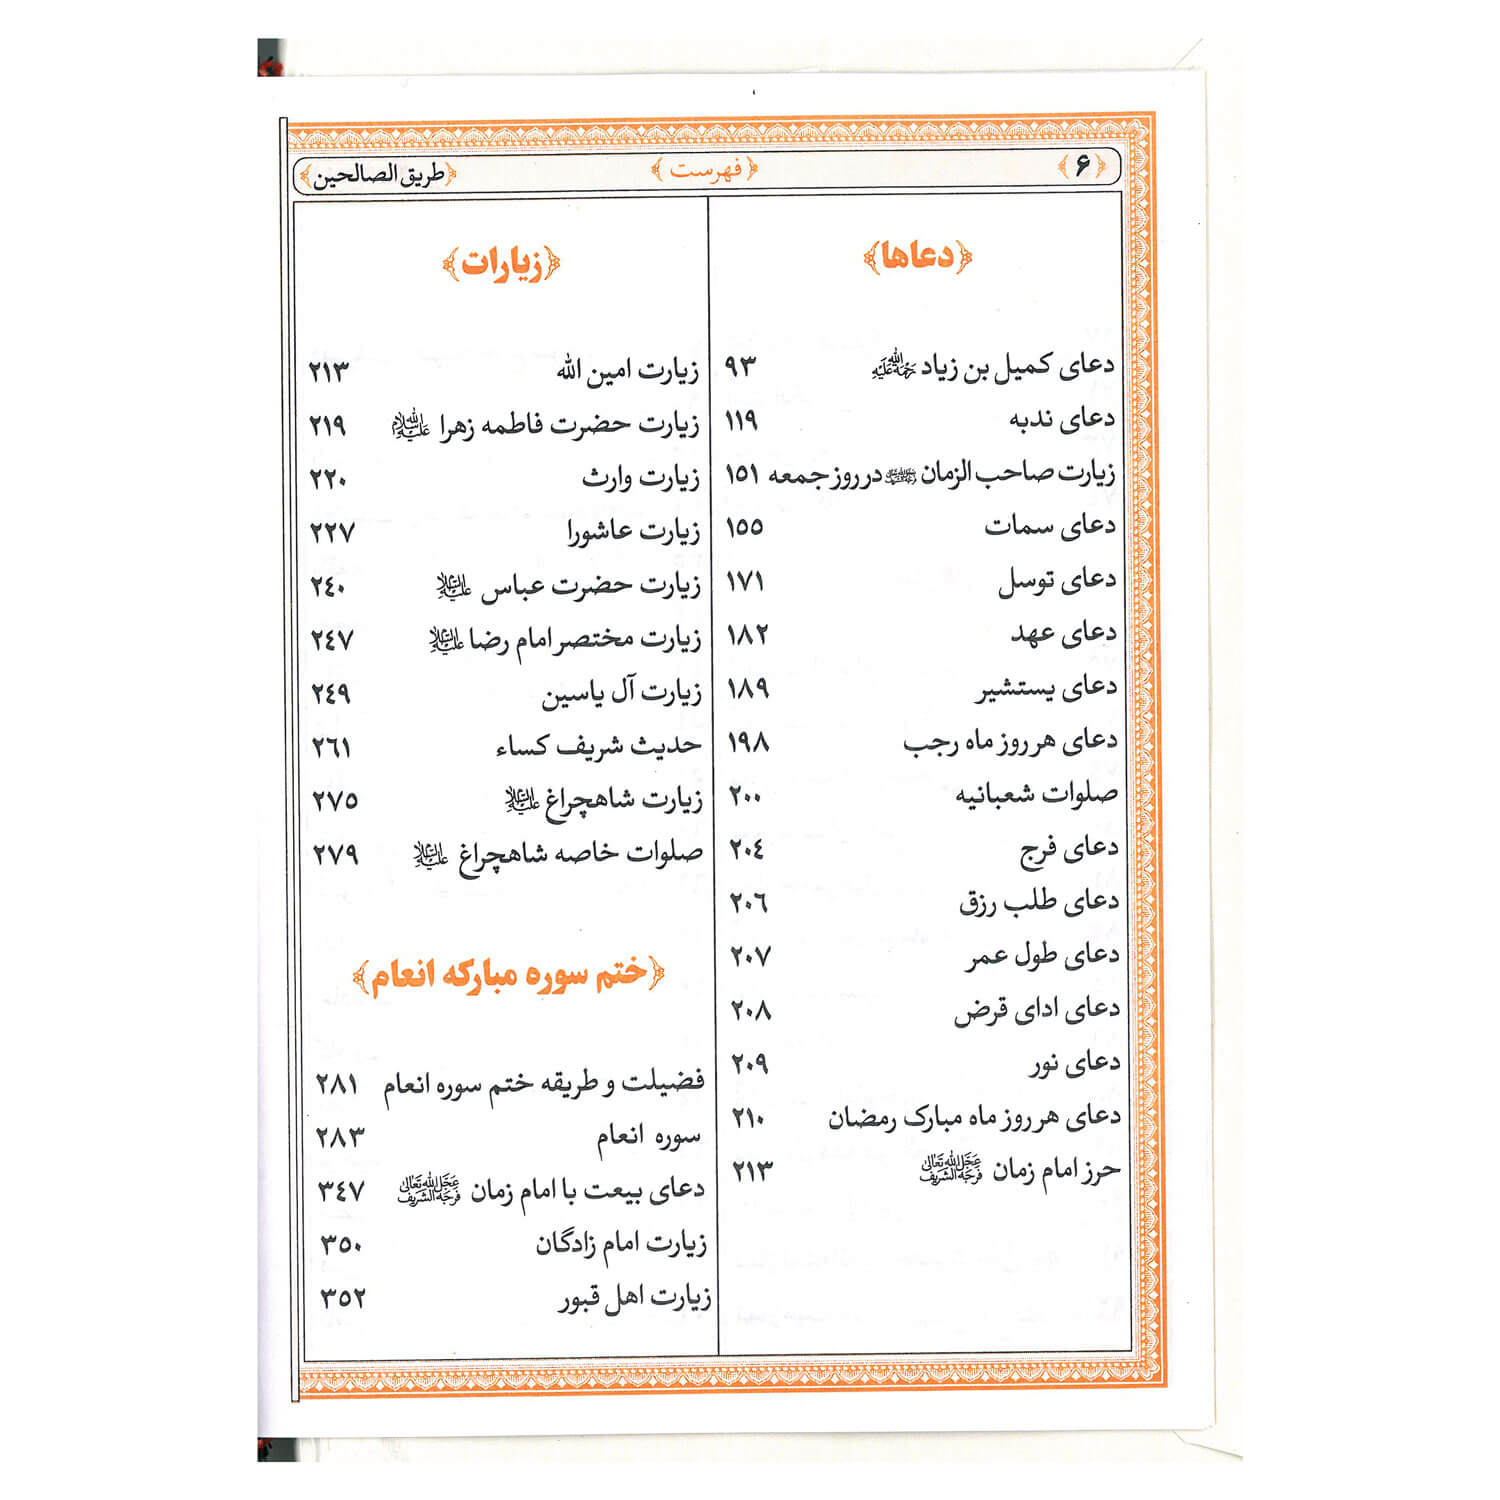 ۶
فهرست
طریق الصالحین
دعاها
دعای کمیل بن زیاد رحمة الله علیه ۹۳
دعای ندبه ۱۱۹
زیارت صاحب الزمان در روز جمعه ۱۵۱
دعای سمات ۱۵۵
دعای توسل ۱۷۱
دعای عهد ۱۸۲
دعای یستشیر ۱۸۹
دعای هر روز ماه رجب ۱۹۸
صلوات شعبانیه ۲۰۰
دعای فرج ۲۰٤
دعای طلب رزق ۲۰٦
دعای طول عمر ۲۰۷
دعای ادای قرض ۲۰۸
دعای نور ۲۰۹
دعای هر روز ماه مبارک رمضان ۲۱۰
حرز امام زمان عجل الله تعالی فرجه الشریف ۲۱۳
زیارات
زیارت امین الله ۲۱۳
زیارت حضرت فاطمه زهرا سلام الله علیها ۲۱۹
زیارت وارث ۲۲۰
زیارت عاشورا ۲۲۷
زیارت حضرت عباس علیه السلام ۲٤۰
زیارت مختصر امام رضا علیه السلام ۲٤۷
زیارت آل یاسین ۲٤۹
حدیث شریف کساء ۲٦۱
زیارت شاهچراغ علیه السلام ۲۷۵
صلوات خاصه شاهچراغ علیه السلام ۲۷۹
ختم سوره مبارکه انعام
فضیلت و طریقه ختم سوره انعام ۲۸۱
سوره انعام ۲۸۳
دعای بیعت با امام زمان عجل الله تعالی فرجه الشریف ۳٤۷
زیارت امام زادگان ۳۵۰
زیارت اهل قبور ۳۵۲